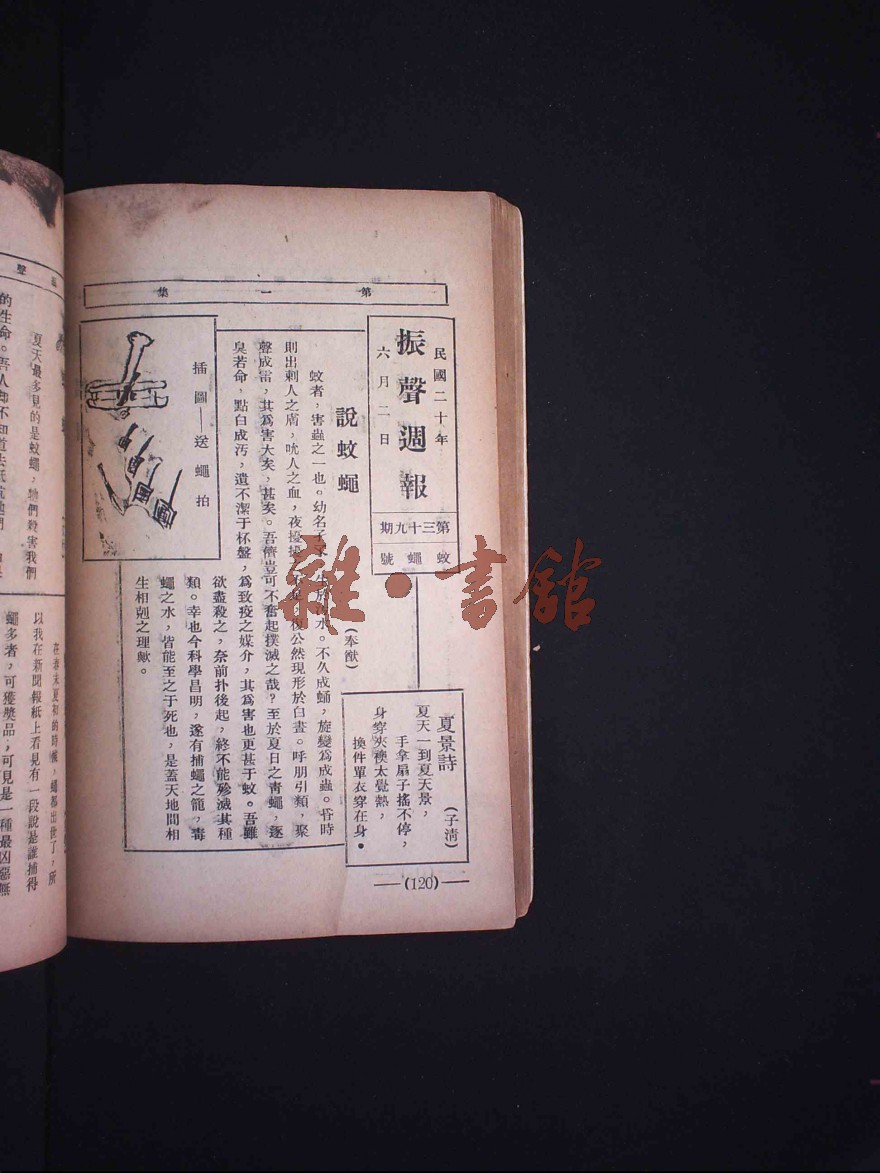 第一集
民國二十年
振聲週報
六月二日
第三十九期
蚊蠅號
說蚊蠅
(奉猷)
蚊者，害蟲之一也。幼名子孑，生於汚水。不久成蛹，旋變爲成蟲。昏時
則出刺人之膚，吮人之血，夜擾
復公然現形於白晝。呼朋引類，聚
聲成雷，其爲害大矣，甚矣。吾儕豈可不奮起撲滅之哉？至於夏日之靑蠅，逐
臭若命，點白成汚，遺不潔于杯盤，爲致疫之媒介，其爲害也更甚于蚊。吾雖
欲盡殺之，奈前扑後起，終不能殄滅其種
類。幸也今科學昌明，遂有捕蠅之籠，毒
蠅之水，皆能至之于死也，是蓋天地間相
生相剋之理歟。
插圖—送蠅拍
夏景詩
(子淸)
夏天一到夏天景，
手拿扇子搖不停，
身穿夾襖太覺熱，
換件單衣穿在身。
(120)
聲
夏天最多見的是蚊蠅，牠們殺害我們
的生命。吾人却不知道去抵抗他們
在春末夏初的時候，蠅都出世了，所
以我在新聞報紙上看見有一段說是誰捕得
蠅多者，可獲獎品，可見是一種最凶惡無
雜·書館